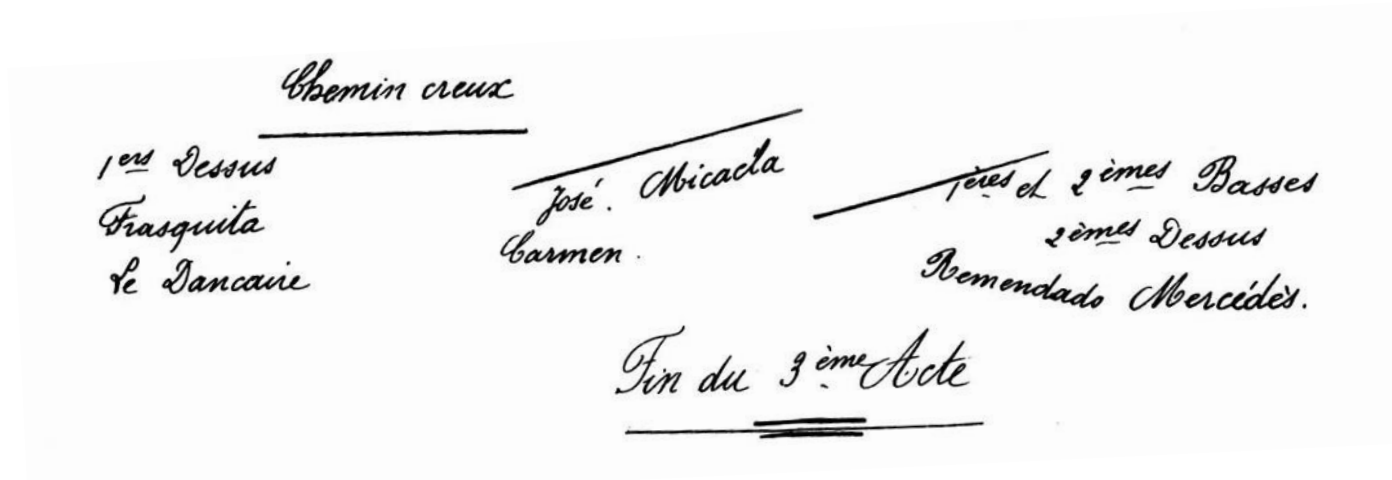 Chemin creux
1ers Dessus
Frasquita
Le Dancaire
José. Micaëla
Carmen.
1ères et 2èmes Basses
2èmes Dessus
Remendado Mercédès.
Fin du 3ème Acte